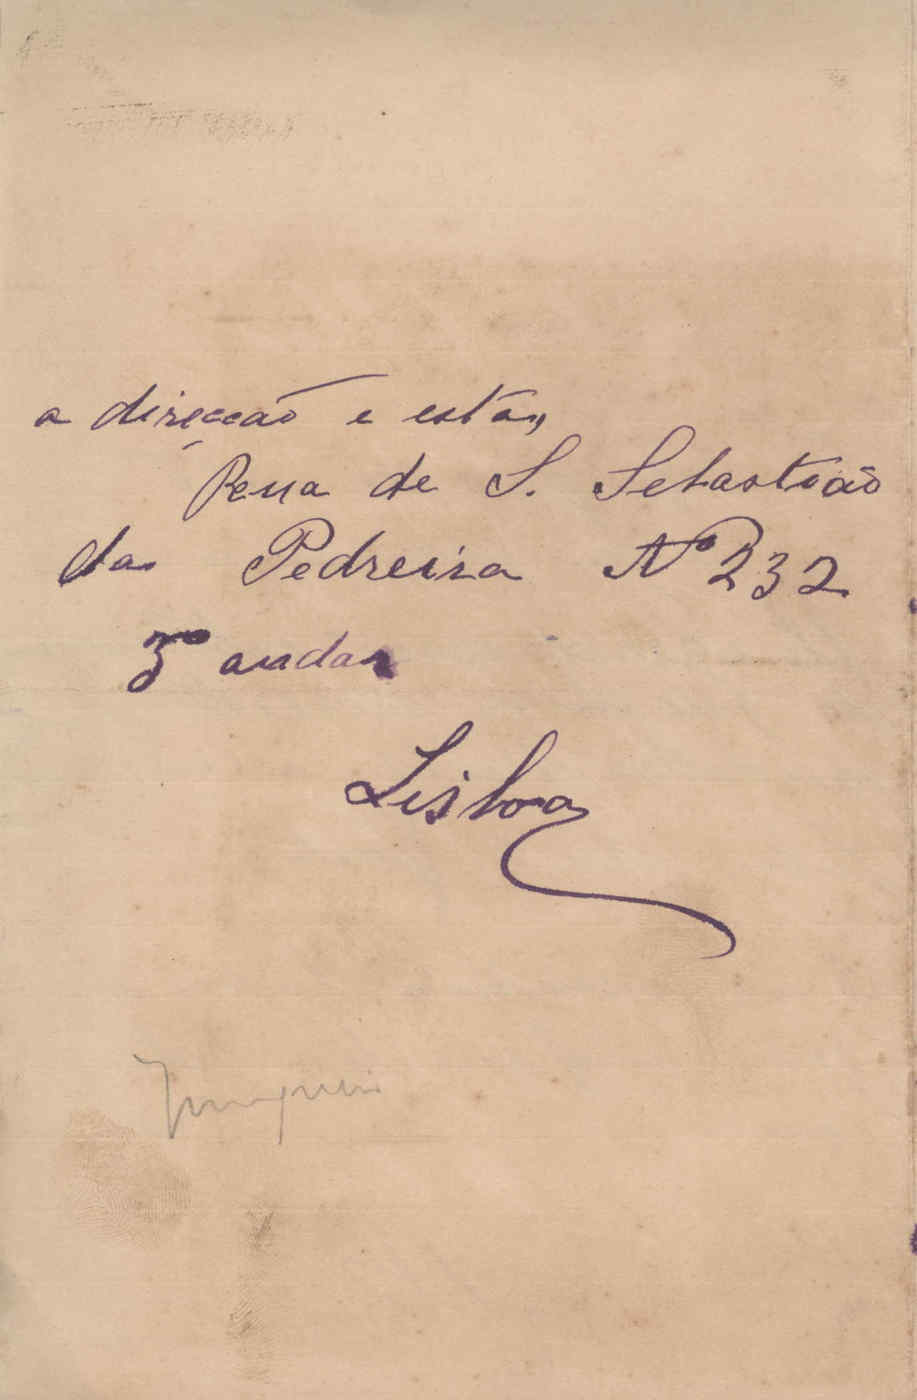 a direcção e esta,,
Rua de S. Sebastião
da Pedreira Nº 232
3º andar
Lisboa